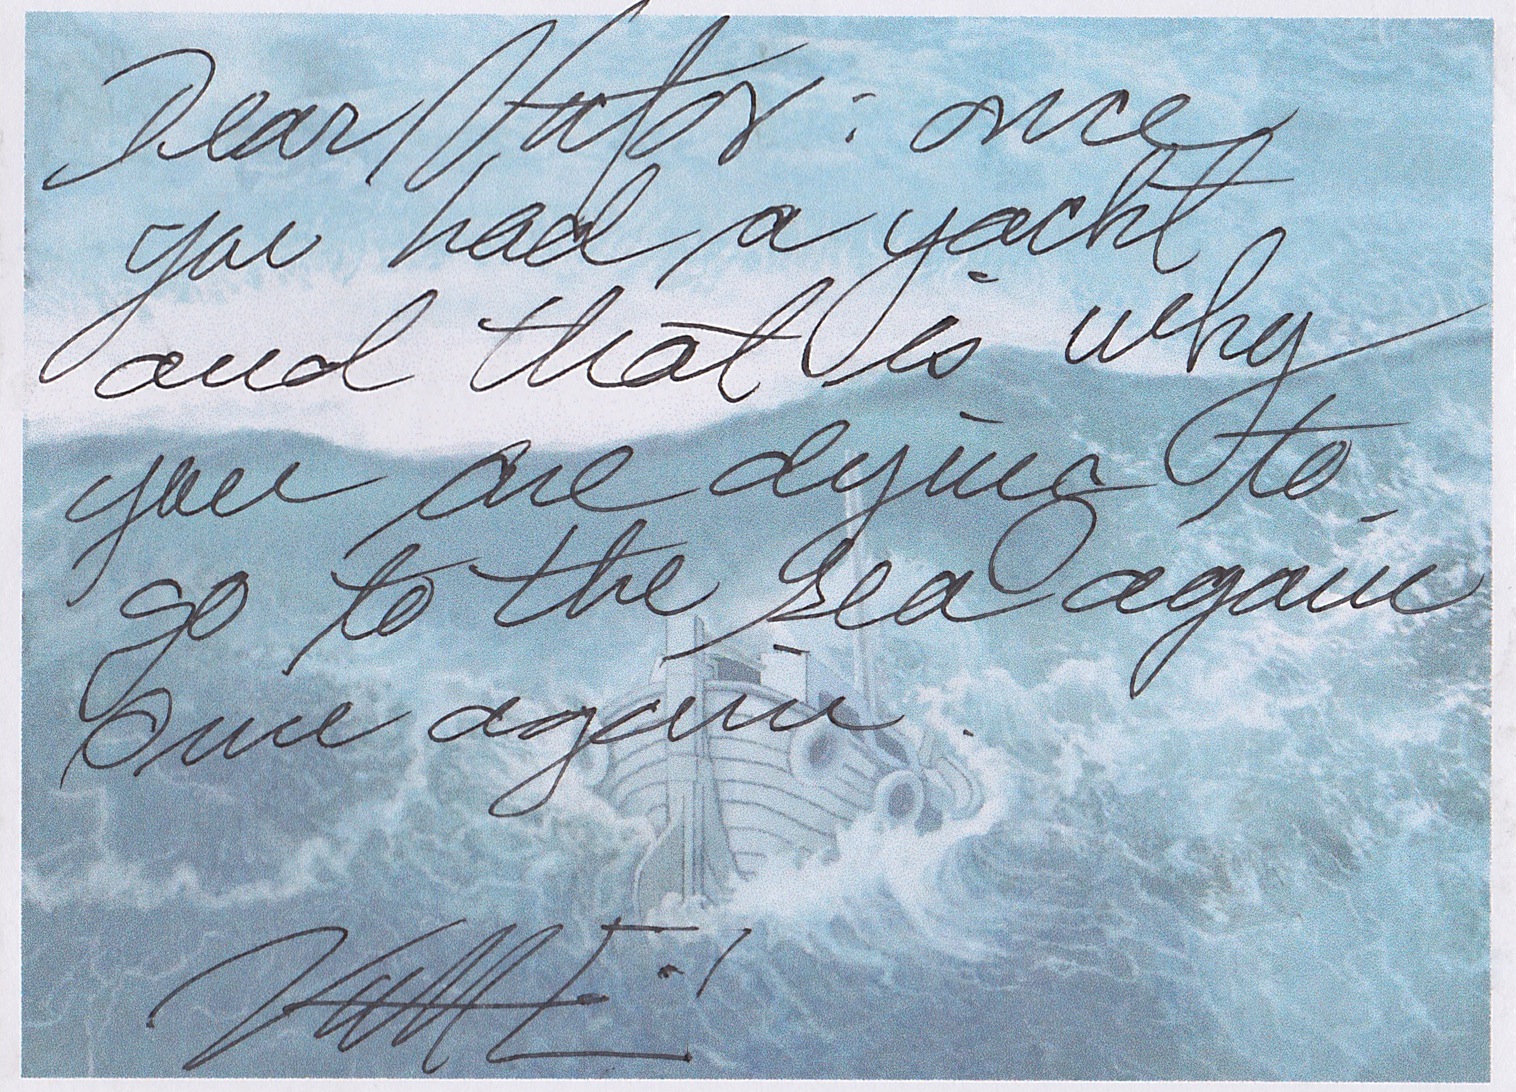 Dear : once
you had a yacht
and that is why
you are dying to
go to the sea again
once again.